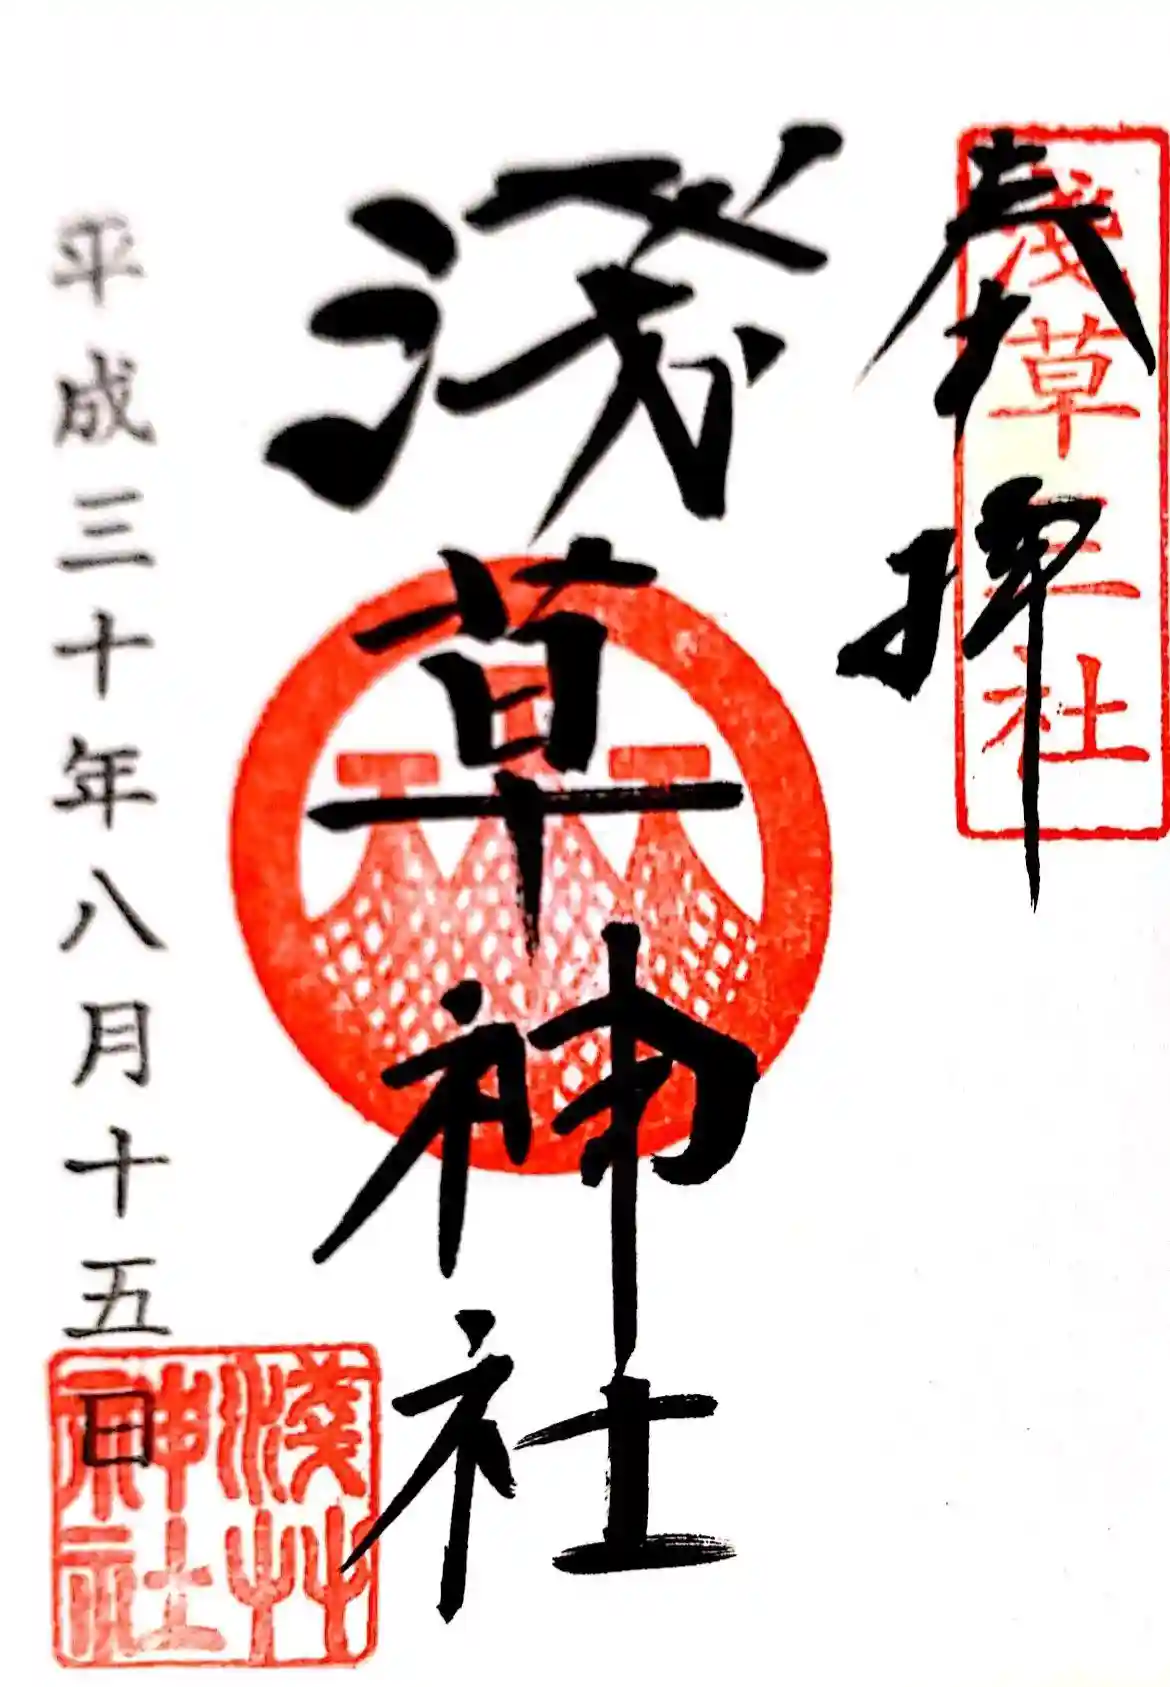 浅草三社
奉拝
浅草神社
平成三十年八月十五日
淺艸
神社